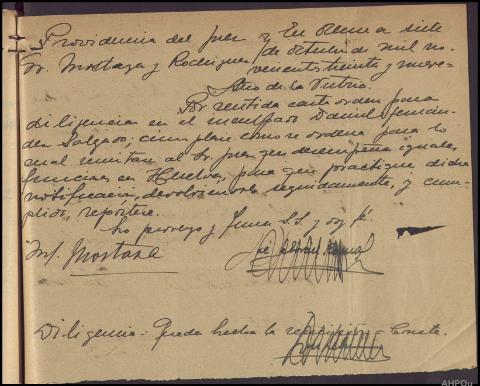 Providencia del Juez
Sr. Mostaza y Rodriguez
En Orense a siete
de Octubre de mil no-
vecientos treinta y nueve-
Año de la Victoria.
Por recibida carta orden para
diligencias en el inculpado Daniel Fernán-
dez Salgado; cúmplase como se ordena para lo
cual remítase al Sr. Juez que desempeña iguales
funciones en Huelva, para que practique dicha
notificación, devolviendola seguidamente, y cum-
plido, repórtese.
Lo proveyó y firma S.S. y doy fé.
Mostaza
Diligencia = Queda hecha la remisión = Conste.
AHPOu